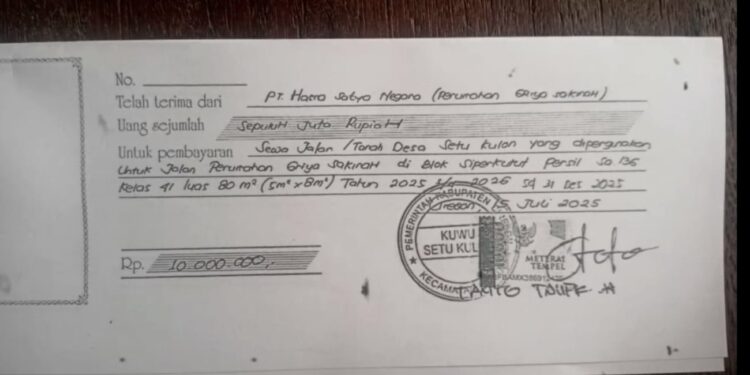 No.
Telah terima dari PT. Hasra Satya Negara (Perumahan Griya Sakinah)
Uang sejumlah Sepuluh Juta Rupiah
Untuk pembayaran Sewa Jalan / Tanah Desa Setu Kulon yang dipergunakan
Untuk Jalan Perumahan Griya Sakinah di Blok Siperkutut Persil 50 136
Kelas 41 luas 80 m² (5m² x 8m²) Tahun 2025 2026 Sd 31 Des 2025
5 Juli 2025
PEMERINTAH KABUPATEN
KUWU
SETU KUL
KECAMATA
METERAI
TEMPEL
Rp. 10.000.000,-